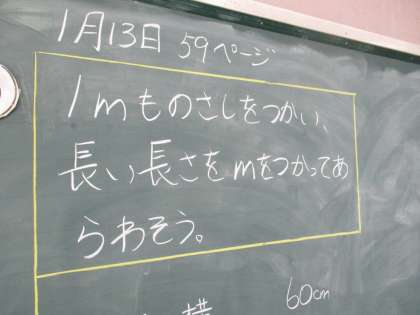 1月13日 59ページ
1mものさしをつかい、
長い長さをmをつかってあ
らわそう。
60cm
横